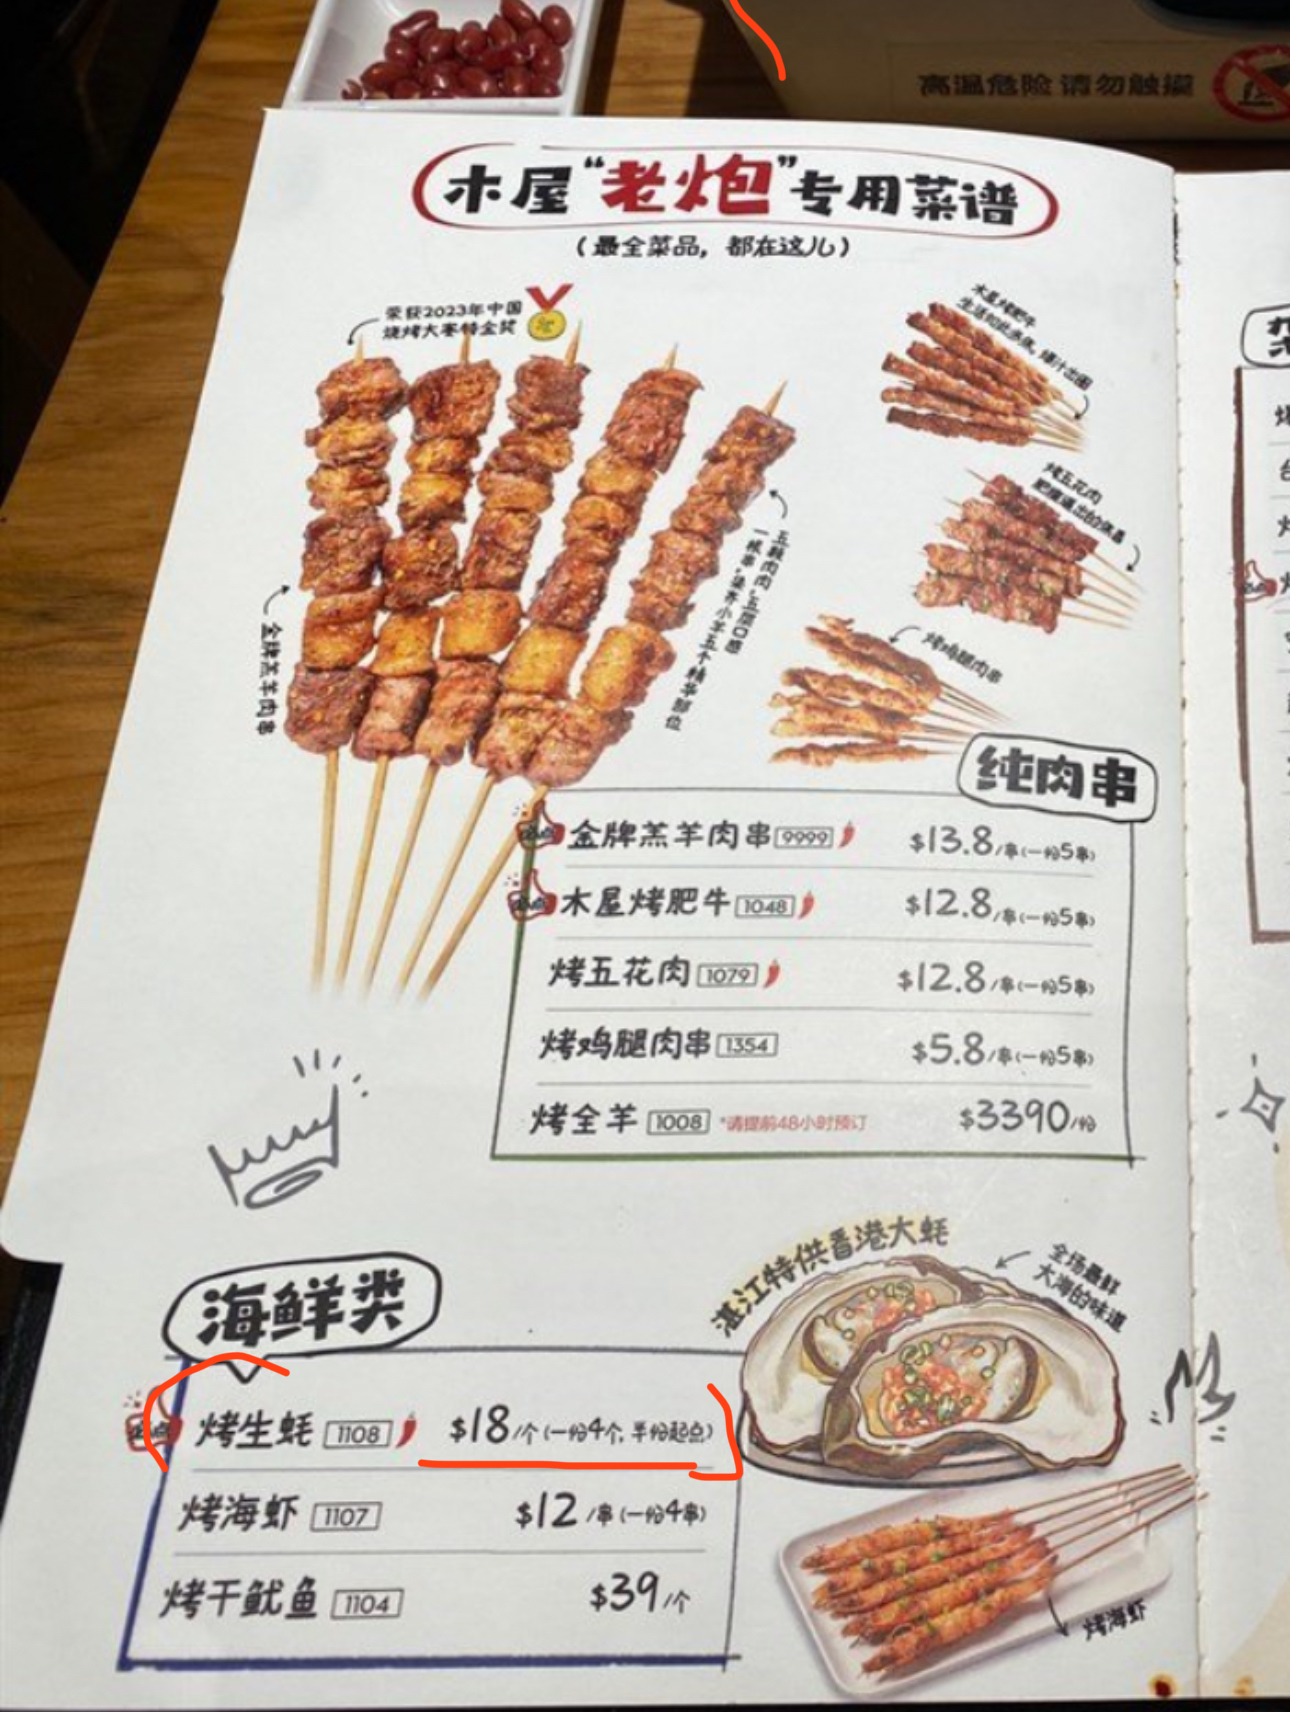 高温危险 请勿触摸
木屋“老炮”专用菜谱
(最全菜品，都在这儿)
荣获2023年中国
烧烤大赛特金奖
金牌羔羊肉串
五颗肉肉，五层口感
一根串，集齐小羊五个精华部位
木屋烤肥牛
烤五花肉
烤鸡腿肉串
纯肉串
必点 金牌羔羊肉串 9999 $13.8/串(一份5串)
必点 木屋烤肥牛 1048 $12.8/串(一份5串)
烤五花肉 1079 $12.8/串(一份5串)
烤鸡腿肉串 1354 $5.8/串(一份5串)
烤全羊 1008 *请提前48小时预订 $3390/份
湛江特供香港大蚝
全场最鲜
大海的味道
海鲜类
必点 烤生蚝 1108 $18/个(一份4个, 半份起点)
烤海虾 1107 $12/串(一份4串)
烤干鱿鱼 1104 $39/个
烤海虾